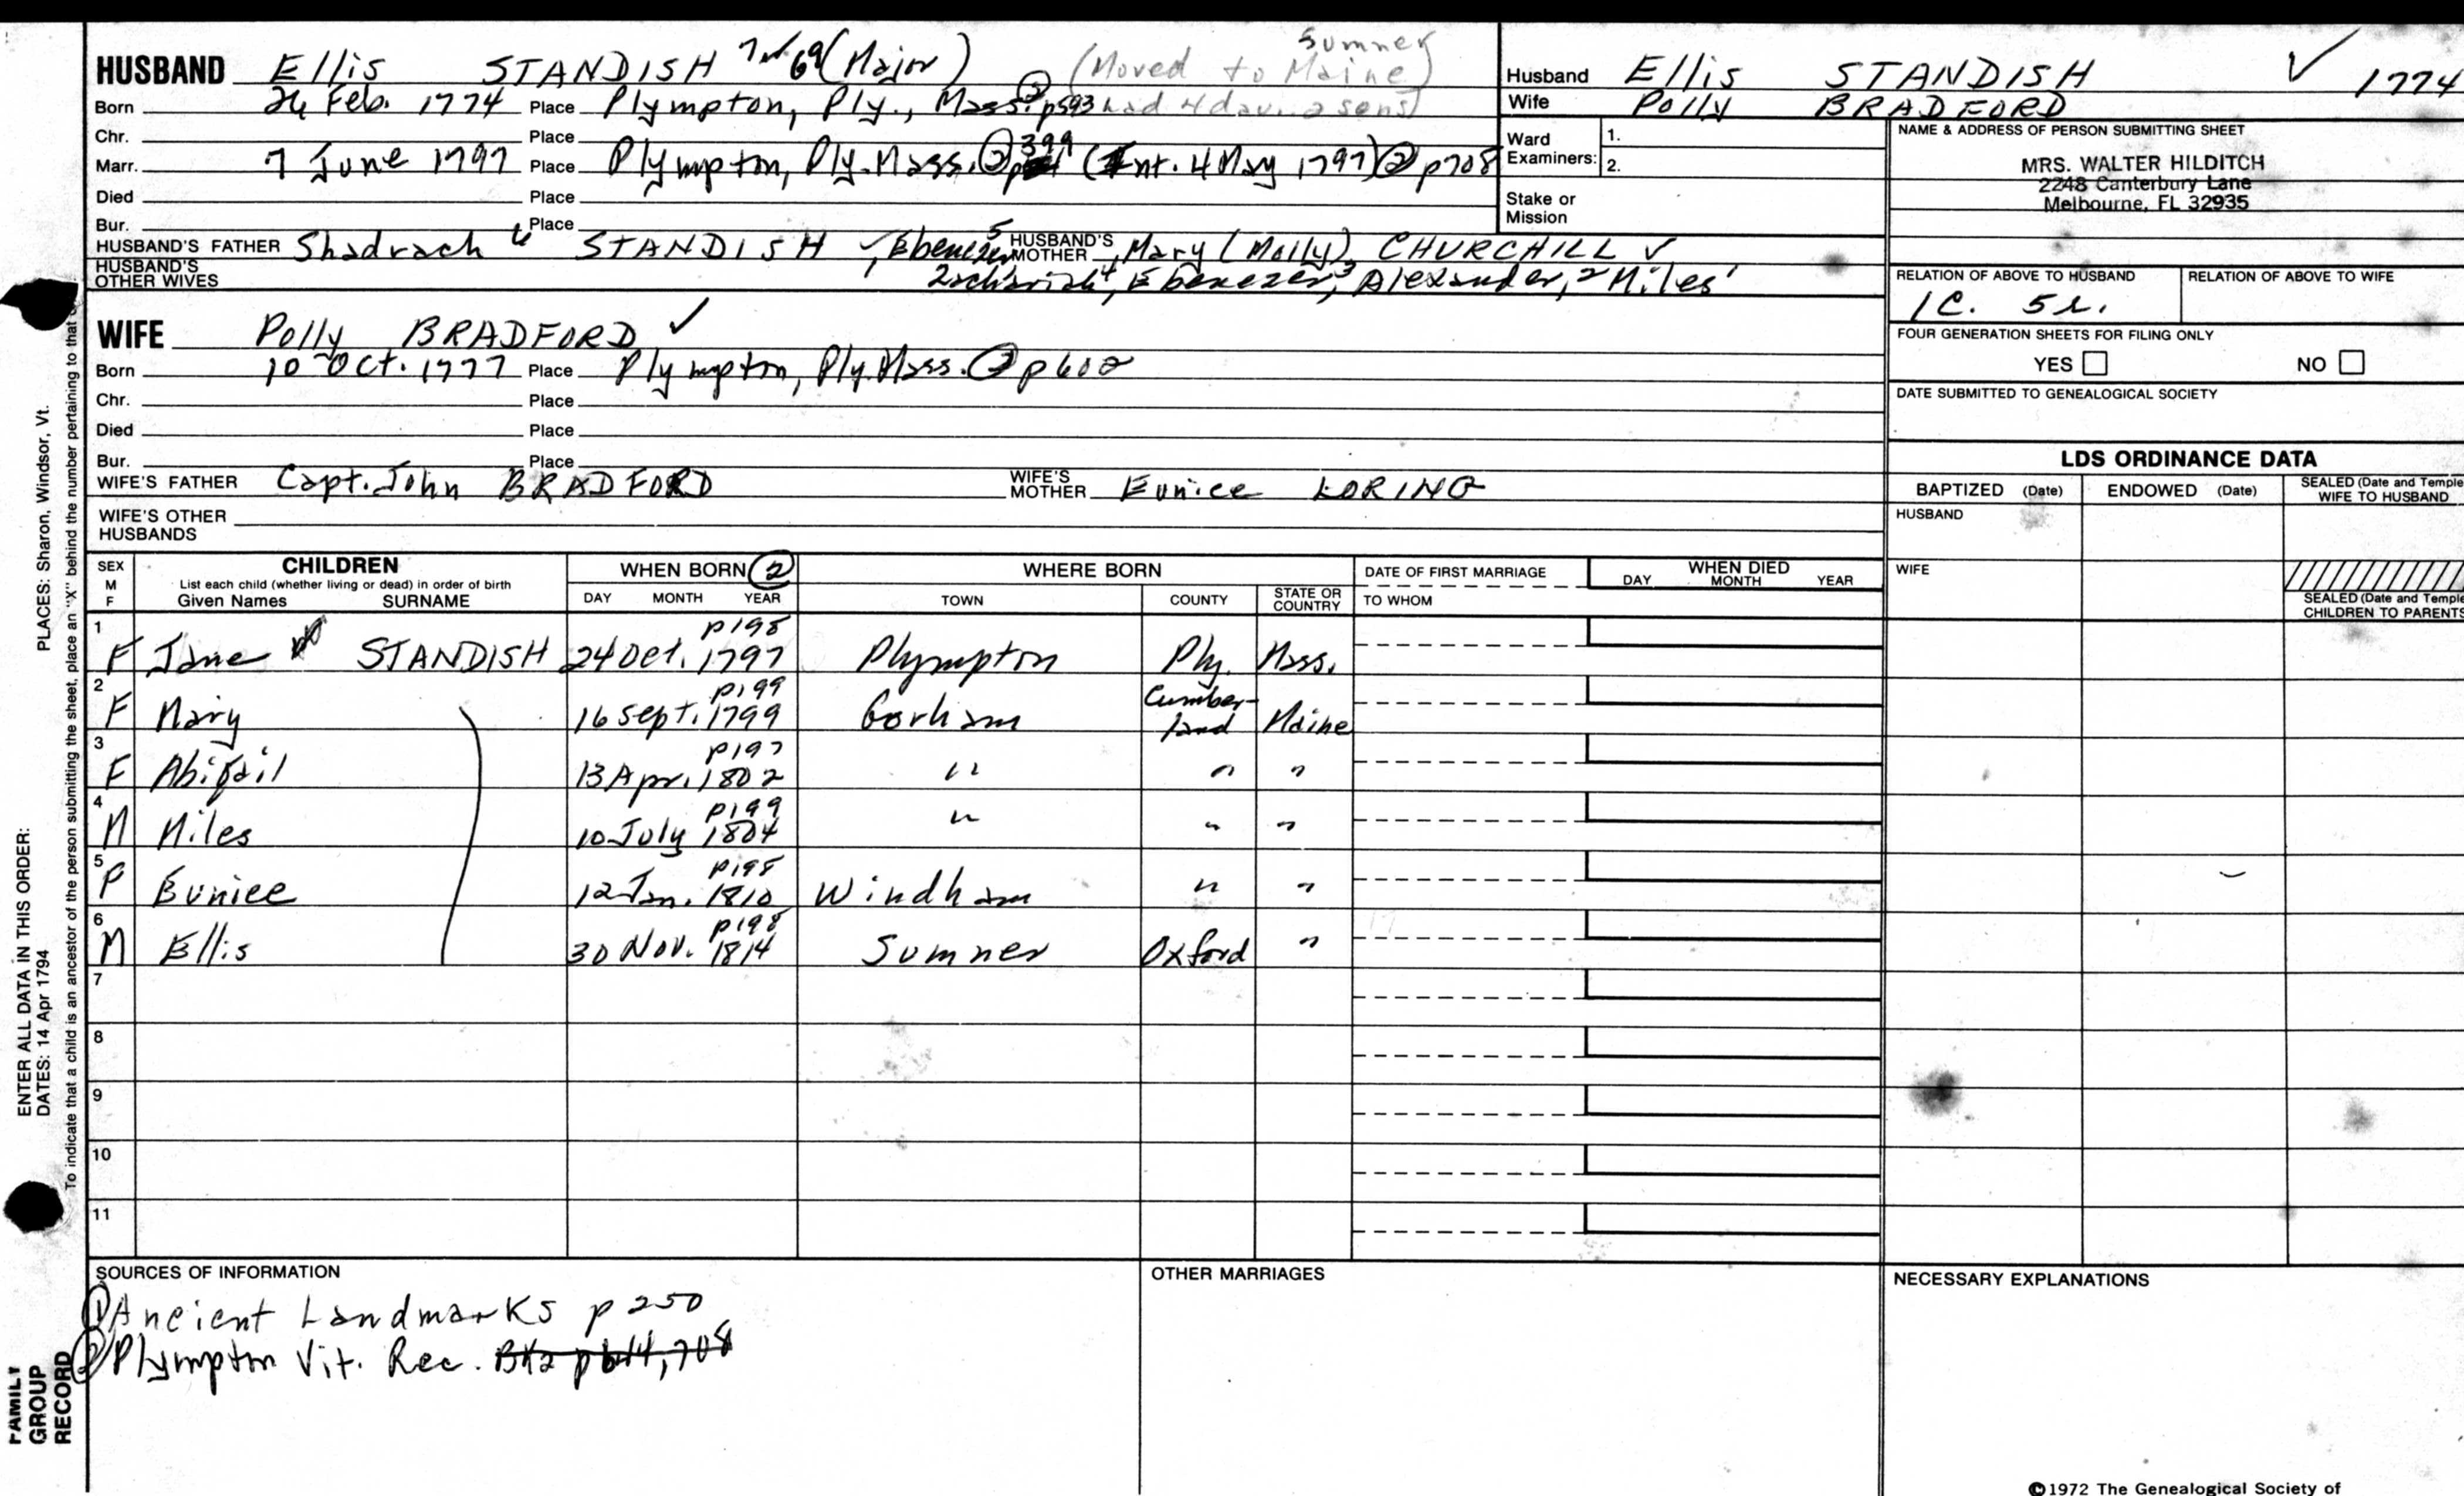 HUSBAND Ellis STANDISH (Major) (Moved to Sumner Maine)
Born 26 Feb. 1774 Place Plympton, Ply., Mass. ② p593 had 4 dau. 2 sons)
Chr. Place
Marr. 7 June 1797 Place Plympton, Ply. Mass. ② p 399 (Int. 4 May 1797) ② p708
Died Place
Bur. Place
HUSBAND'S FATHER Shadrach 6 STANDISH, Ebenezer 5 HUSBAND'S MOTHER Mary (Molly) CHURCHILL ✓
HUSBAND'S OTHER WIVES Zachariah 4, Ebenezer 3, Alexander, 2 Miles 1
WIFE Polly BRADFORD ✓
Born 10 Oct. 1777 Place Plympton, Ply. Mass. ② p602
Chr. Place
Died Place
Bur. Place
WIFE'S FATHER Capt. John BRADFORD WIFE'S MOTHER Eunice LORING
WIFE'S OTHER HUSBANDS
Husband Ellis STANDISH ✓ 1774
Wife Polly BRADFORD
Ward Examiners: 1.
2.
Stake or Mission
NAME & ADDRESS OF PERSON SUBMITTING SHEET
MRS. WALTER HILDITCH
2248 Canterbury Lane
Melbourne, FL 32935
RELATION OF ABOVE TO HUSBAND RELATION OF ABOVE TO WIFE
1C. 5r.
FOUR GENERATION SHEETS FOR FILING ONLY
YES NO
DATE SUBMITTED TO GENEALOGICAL SOCIETY
LDS ORDINANCE DATA
BAPTIZED (Date) ENDOWED (Date) SEALED (Date and Temple) WIFE TO HUSBAND
HUSBAND
WIFE
SEALED (Date and Temple) CHILDREN TO PARENTS
SEX M F CHILDREN WHEN BORN ② WHERE BORN DATE OF FIRST MARRIAGE WHEN DIED
List each child (whether living or dead) in order of birth
Given Names SURNAME DAY MONTH YEAR TOWN COUNTY STATE OR COUNTRY TO WHOM DAY MONTH YEAR
1 F Jane STANDISH 24 Oct. 1797 p198 Plympton Ply. Mass.
2 F Mary 16 Sept. 1799 p199 Gorham Cumber-land Maine
3 F Abigail 13 Apr. 1802 p197 " " "
4 M Miles 10 July 1804 p199 " " "
5 F Eunice 12 Jan. 1810 p198 Windham " "
6 M Ellis 30 Nov. 1814 p198 Sumner Oxford "
7
8
9
10
11
SOURCES OF INFORMATION
① Ancient Landmarks p 250
② Plympton Vit. Rec. Bk2 p 614, 708
OTHER MARRIAGES
NECESSARY EXPLANATIONS
©1972 The Genealogical Society of
PLACES: Sharon, Windsor, Vt.
ENTER ALL DATA IN THIS ORDER:
DATES: 14 Apr 1794
To indicate that a child is an ancestor of the person submitting the sheet, place an "X" behind the number pertaining to that
FAMILY GROUP RECORD